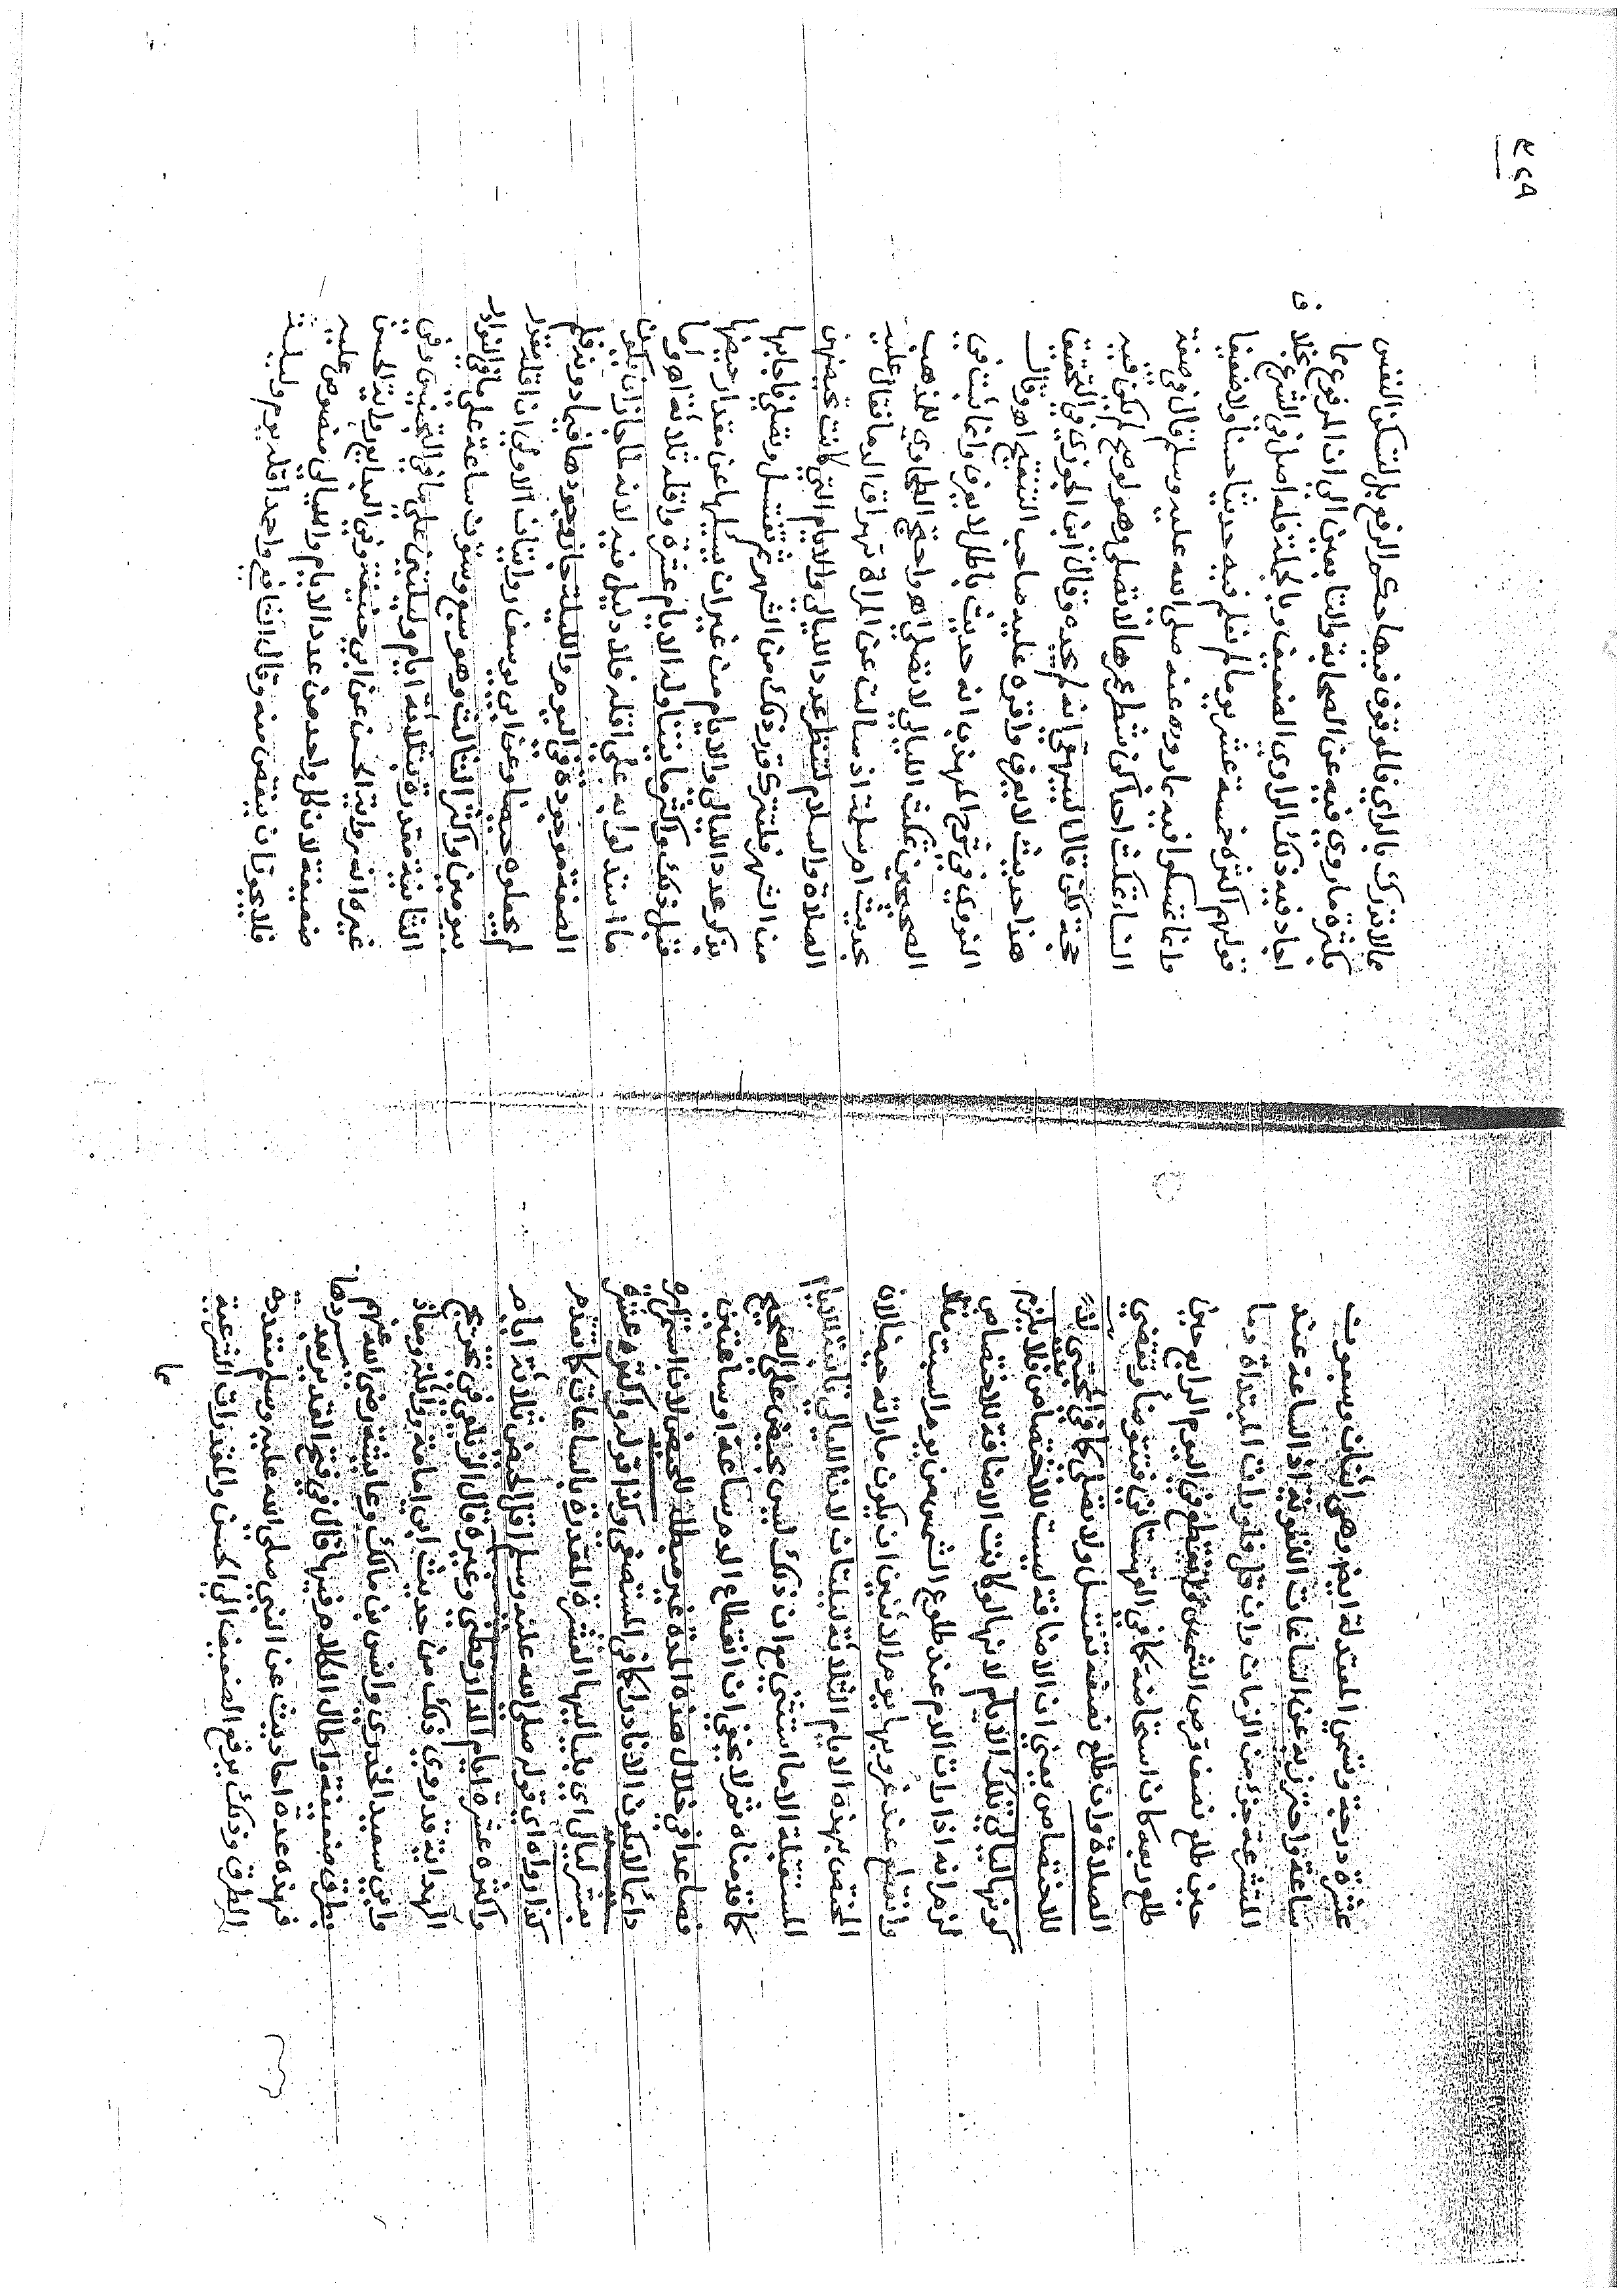 عشرة درجة وتسمى المعتدلة ايض وهي اثنان وسبعون
ساعة واحترز به عن الساعات اللغوية اذ الساعة عند
المتشرعة جزء من الزمان وان قل فلو رات المبتداة دما
حين طلع نصف قرص الشمس وانقطع في اليوم الرابع حين
طلع ربعه كان استحاضة كما في القهستاني فيتوضأ وتقضي
الصلاة وان طلع نصفه تغتسل ولا تصلي كما في المجتبى
للاختصاص يعني ان الاضافة ليست للاختصاص فلا يلزم
كونها ليالي تلك الايام لانها لو كانت الاضافة للاختصاص
لزم انه اذا رات الدم عند طلوع الشمس من يوم السبت مثلا
وانقطع عند غروبها يوم الاثنين ان يكون ما راته حيضا لان
المختص بهذه الايام الثلاثة ليلتان لان الليالي تابعة للايام
المستقبلة الا ما استثنى مع ان ذلك ليس بحيض على الصحيح
كما قدمناه ثم لا يخفى ان انقطاع الدم ساعة او ساعتين
فصاعدا في خلال هذه المدة غير مبطلة للحيض لان استمراره
دائما لا يكون الا نادرا كما في المستصفى وكذا قوله واكثره عشرة
بعشر ليال اي بلياليها العشرة المقدرة بالساعات كما تقدم
كذا رواه اي قوله صلى الله عليه وسلم اقل الحيض ثلاثة ايام
واكثره عشرة ايام الدارقطني وغيره قال الزيلعي في تخريج
الهداية قد روي ذلك من حديث ابي امامة وواثلة ومعاذ
وابي سعيد الخدري وانس بن مالك وعائشة رضي الله عنهم
بطرق ضعيفة واطال الكلام فيها قال في فتح القدير بعد سردها
فهذه عدة احاديث عن النبي صلى الله عليه وسلم متعددة
الطرق وذلك يرفع الضعيف الى الحسن والمقدرات الشرعية
ما
مما لا تدرك بالراي فالموقوف فيها حكم الرفع بل تسكن النفس
بكثرة ما روي فيه عن الصحابة والتابعين الى ان المرفوع مما
اجاد فيه ذلك الراوي الضعيف وبالجملة فله اصل في الشرع بخلاف
قولهم اكثره خمسة عشر يوما لم نعلم فيه حديثا حسنا ولا ضعيفا
وانما تمسكوا فيه بما رووه عنه صلى الله عليه وسلم قال في صفة
النساء تمكث احداكن شطر عمرها لا تصلي وهو لو صح لم يكن فيه
حجة لكن قال البيهقي انه لم يجده وقال ابن الجوزي في التحقيق
هذا حديث لا يعرف واقره عليه صاحب التنقيح اهـ وقال
النووي في شرح المهذب انه حديث باطل لا يعرف وانما ثبت في
الصحيحين تمكث الليالي لا تصلي اهـ واحتج الطحاوي للمذهب
بحديث ام سلمة اذ سالت عن المراة تهراق الدم فقال عليه
الصلاة والسلام لتنظر عدد الليالي والايام التي كانت تحيضهن
من الشهر فلتترك قدر ذلك من الشهر ثم تغتسل وتصلي فاجابها
بذكر عدد الليالي والايام من غير ان يسئلها عن مقدار حيضها
قبل ذلك واكثر ما يتناوله الايام عشرة واقله ثلاثة اهـ واما
ما استدلوا به على اقله فلا دليل فيه لانه لما جاز ان تكون
الصفة موجودة في اليوم والليلة جاز وجودها فيما دونه فلم
لم يجعلوه حيضا وعن ابي يوسف روايتان الاولى ان اقله مقدر
بيومين واكثر الثالث وهو سبع وستون ساعة على ما في النوادر
الثانية مقدرة بثلاثة ايام وليلتين على ما في التجنيس وفي
غيره انه رواية الحسن عن ابي حنيفة وفي البدايع رواية الحسن
ضعيفة لان كل واحد من عدد الايام والليالي منصوص عليه
فلا يجوز ان ينقص منه وقال الشافعي واحمد اقله يوم وليلة